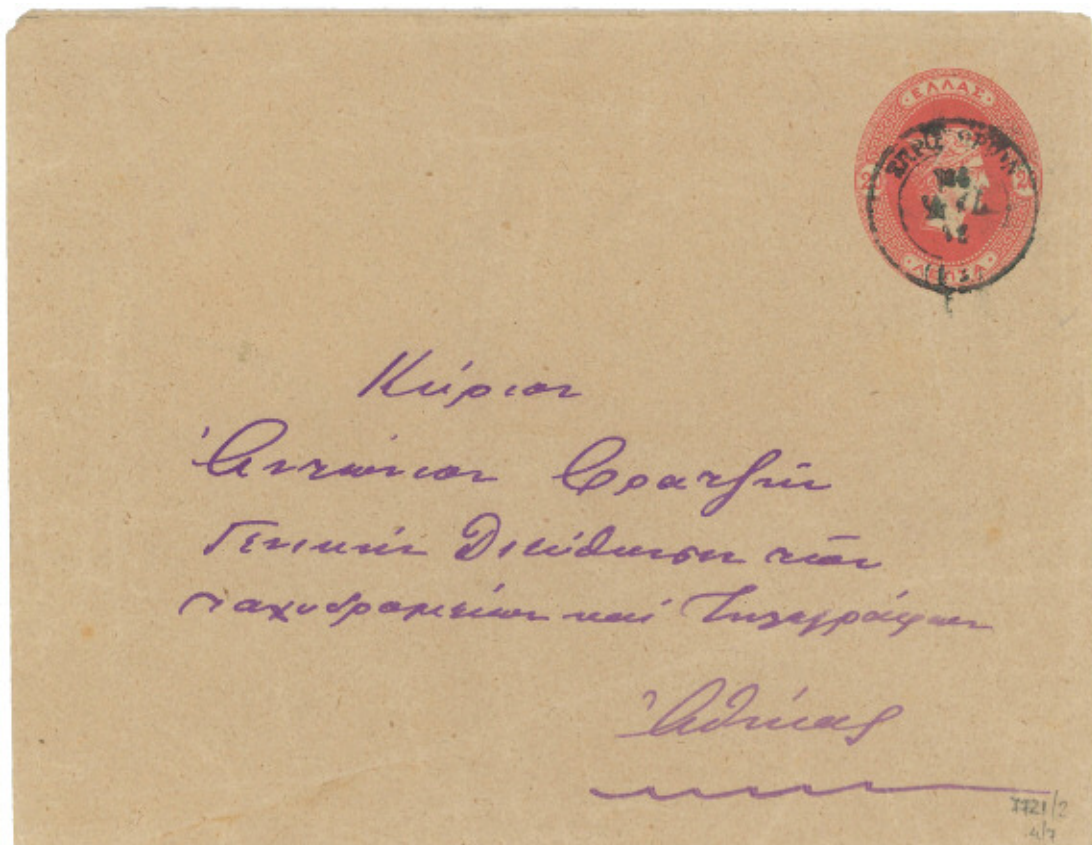 ΕΛΛΑΣ
2 2
ΛΕΠΤΑ
Κύριον
Ἀντώνιον Φρατζῆν
Γενικὴν Διεύθυνσιν τῶν
ταχυδρομείων καὶ Τηλεγράφων
Ἀθήνας
7721/2
4/7